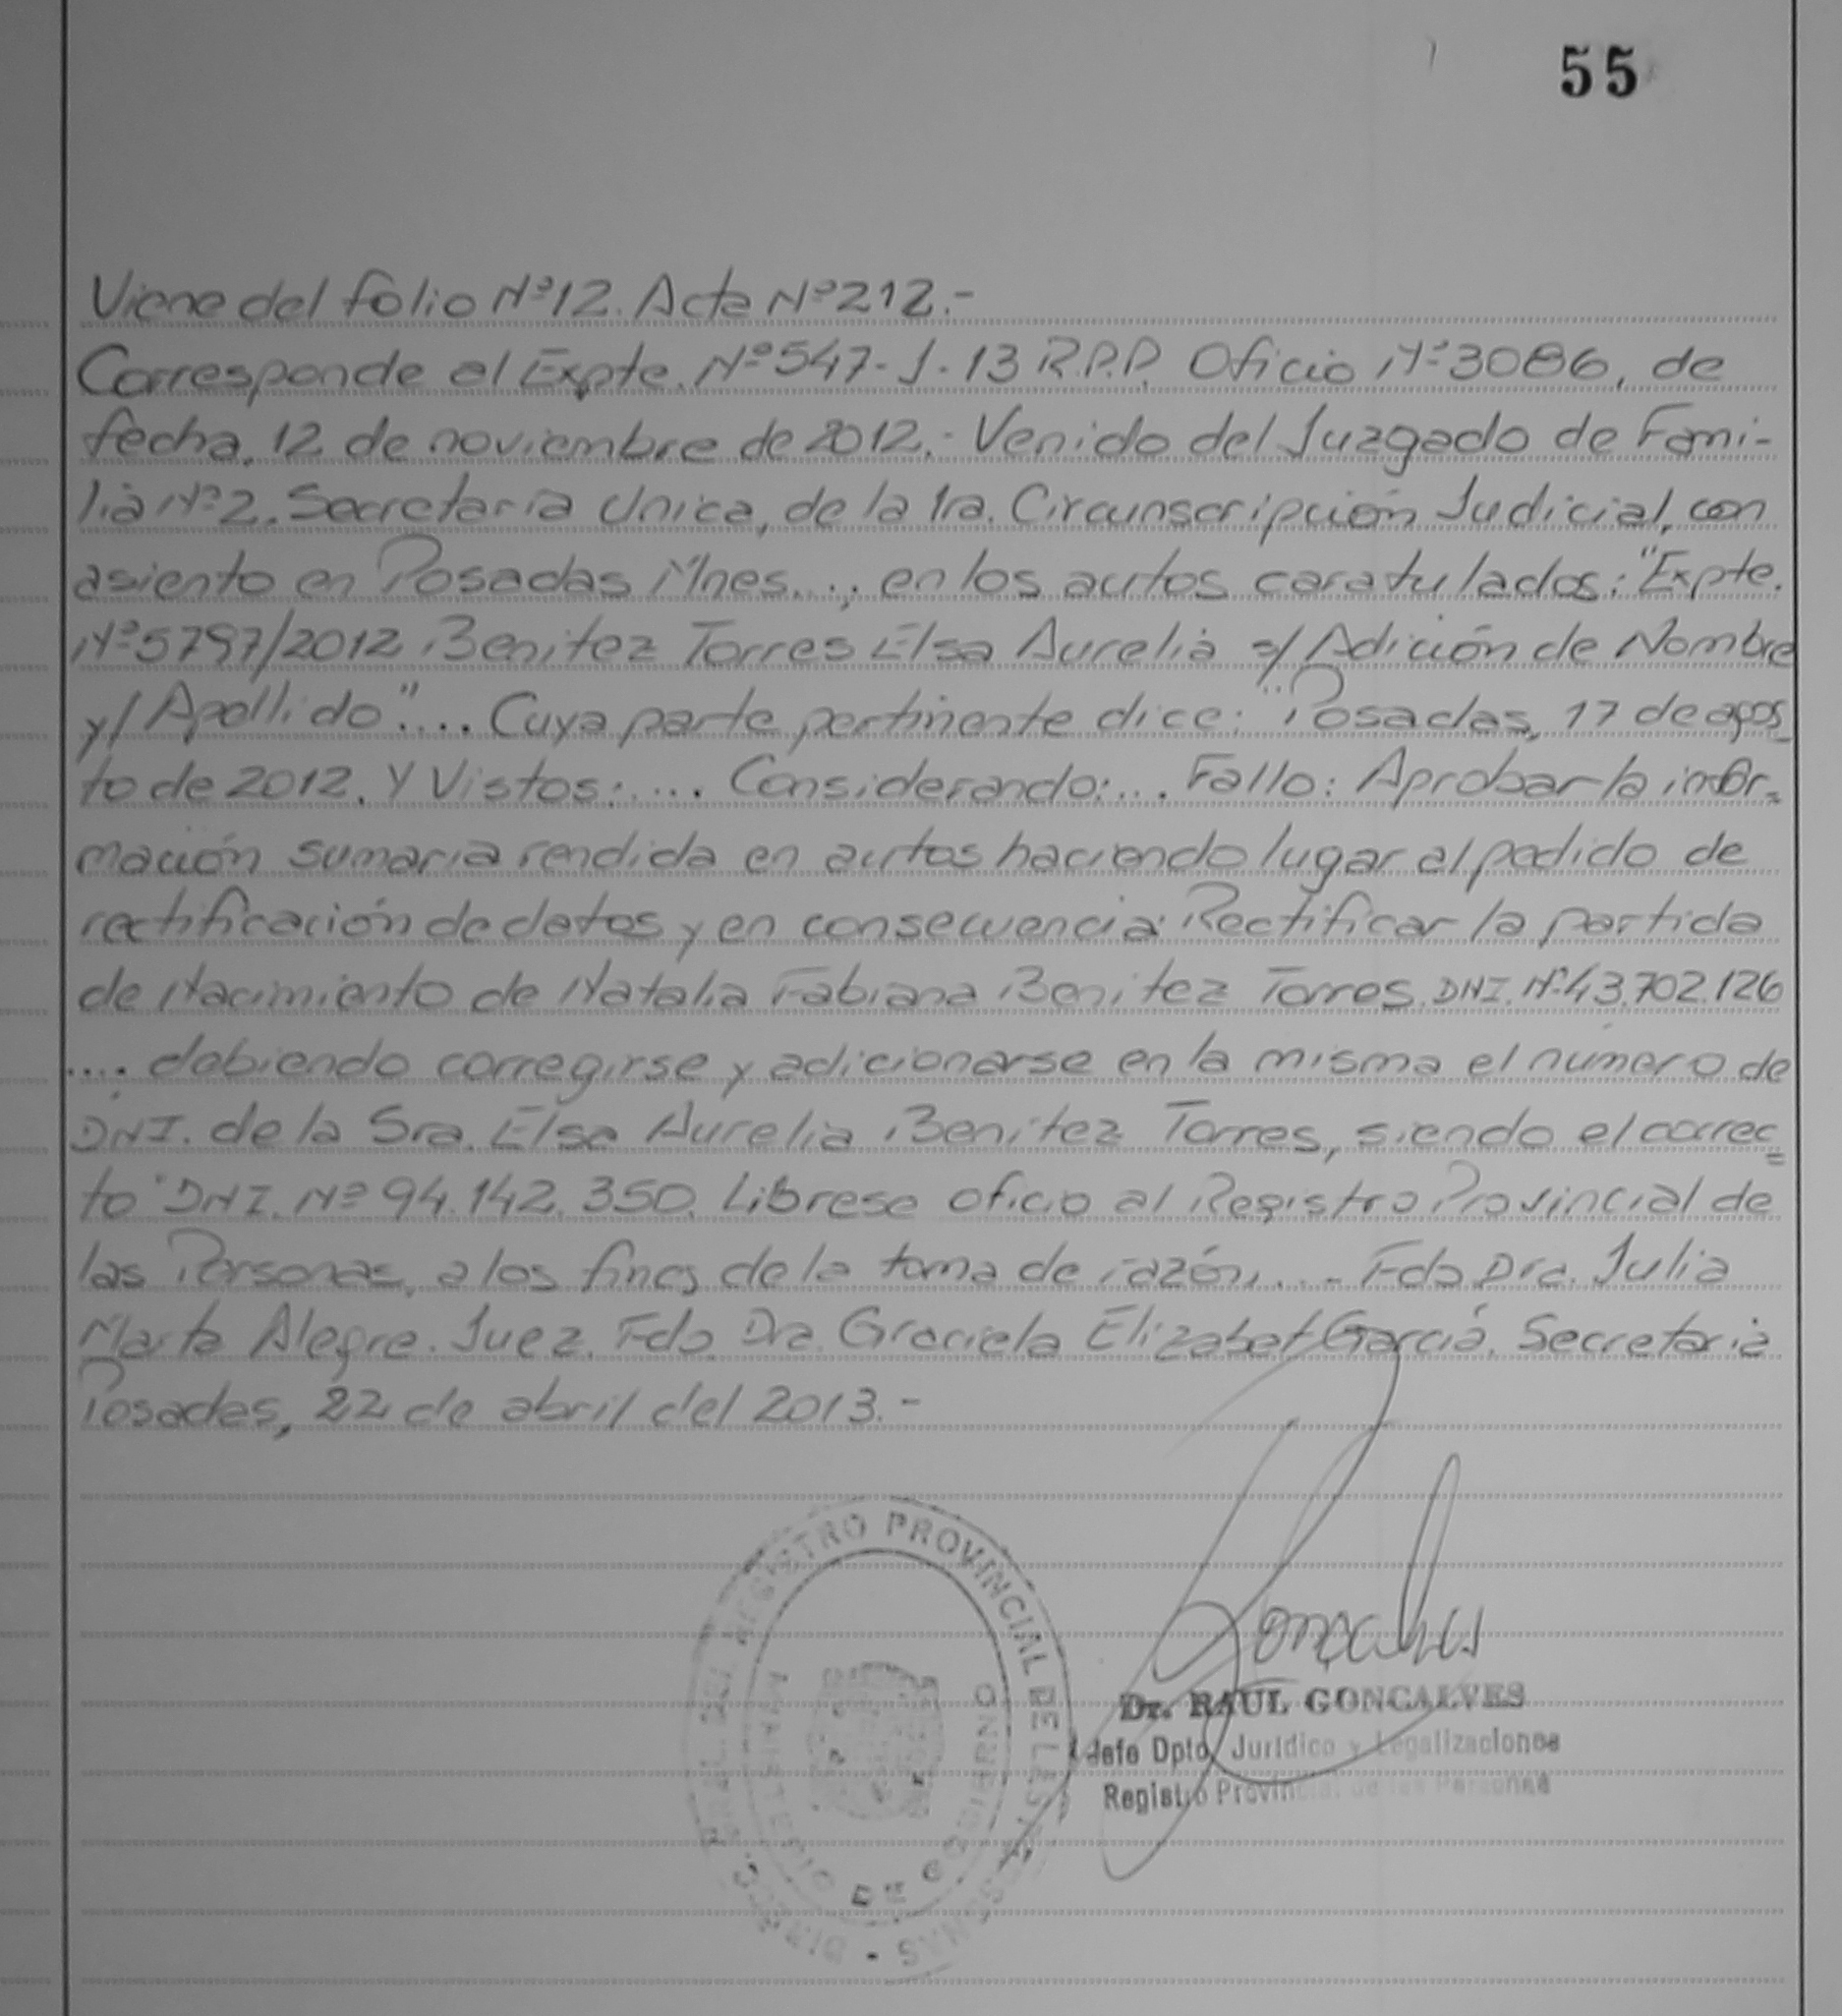 55
Viene del folio Nº12. Acta Nº212.-
Corresponde al Expte. Nº547-J-13 R.P.P. Oficio Nº3086, de
fecha, 12 de noviembre de 2012.- Venido del Juzgado de Fami-
lia Nº2. Secretaría Unica, de la 1ra. Circunscripción Judicial, con
asiento en Posadas Mnes..., en los autos caratulados: "Expte.
Nº5797/2012 Benitez Torres Elsa Aurelia s/ Adición de Nombre
y/ Apellido".... Cuya parte pertinente dice: "Posadas, 17 de agos
to de 2012. Y Vistos:.... Considerando:... Fallo: Aprobar la infor=
mación sumaria rendida en autos haciendo lugar al pedido de
rectificación de datos y en consecuencia: Rectificar la partida
de Nacimiento de Natalia Fabiana Benitez Torres. DNI. Nº43.702.126
.... debiendo corregirse y adicionarse en la misma el número de
DNI. de la Sra. Elsa Aurelia Benitez Torres, siendo el correc=
to DNI. Nº 94.142.350. Librese oficio al Registro Provincial de
las Personas, a los fines de la toma de razón.... Fdo Dra. Julia
Marta Alegre. Juez. Fdo. Dra. Graciela Elizabet García. Secretaria
Posadas, 22 de abril del 2013.-
REGISTRO PROVINCIAL DE LAS PERSONAS
MINISTERIO DE GOBIERNO
Goncalves
Dr. RAUL GONCALVES
Jefe Dpto. Jurídico y Legalizaciones
Registro Provincial de las Personas